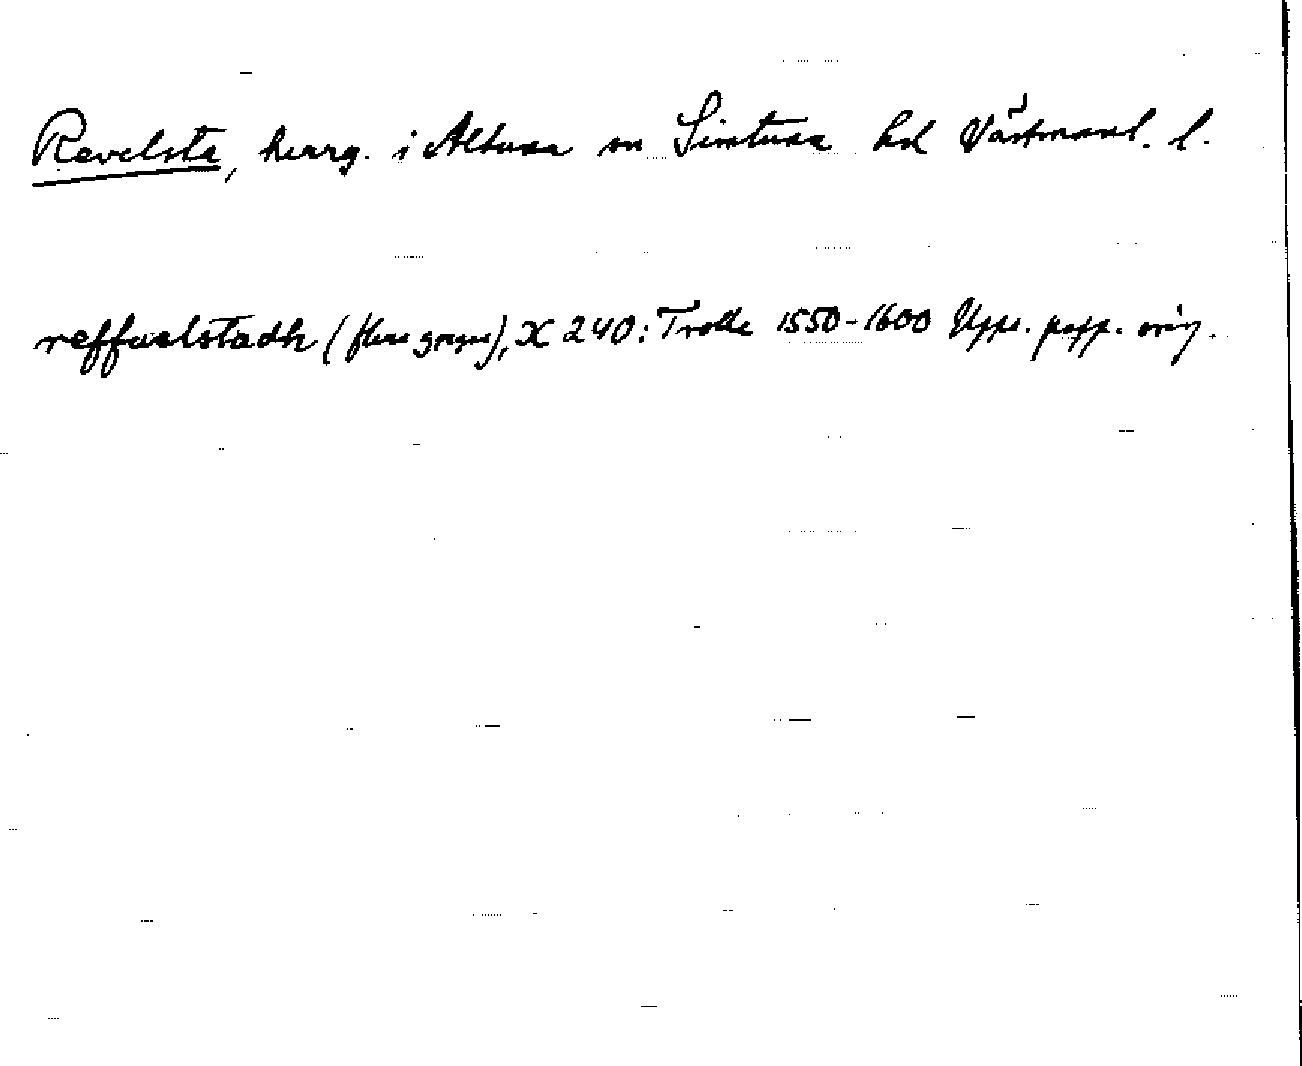 Revelsta, herrg. i Altuna sn Simtuna hd Västmanl. l.
reffuelstadh (flera gånger), X 240: Trolle 1550-1600 Upps. papp. orig.